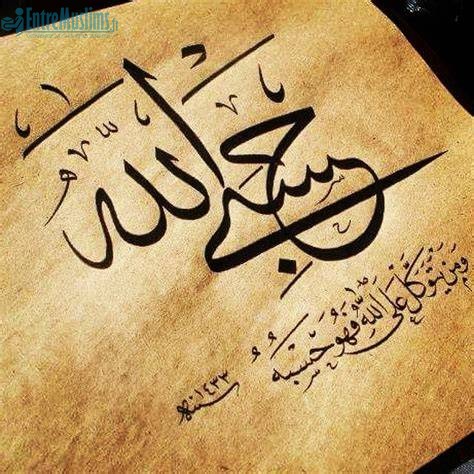 EntreMuslims.fr
حسبي الله
ومن يتوكل على الله فهو حسبه
سنة ١٤٣٣